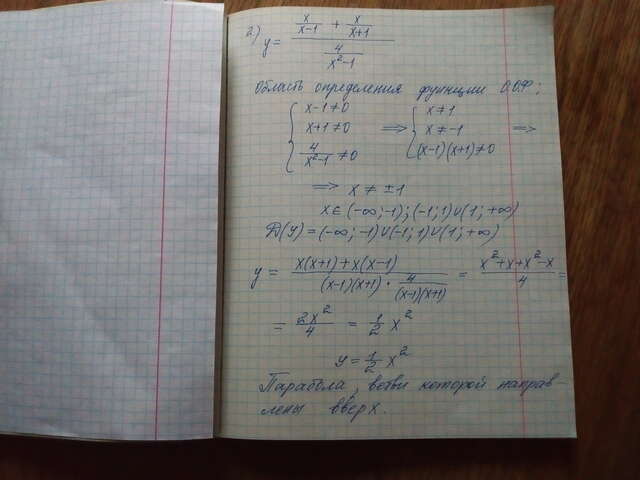 2) y = (x/(x-1) + x/(x+1)) / (4/(x²-1))
Область определения функции О.О.Ф;
{ x-1≠0 ⟹ { x≠1
x+1≠0 x≠-1
4/(x²-1) ≠0 (x-1)(x+1)≠0 ⟹
⟹ x ≠ ±1
x∈(-∞;-1);(-1;1)∪(1;+∞)
D(y)=(-∞;-1)∪(-1;1)∪(1;+∞)
y = (x(x+1)+x(x-1)) / ((x-1)(x+1)·4/((x-1)(x+1))) = (x²+x+x²-x)/4 =
= 2x²/4 = 1/2 x²
y=1/2 x²
Парабола, ветви которой направ-
лены вверх.